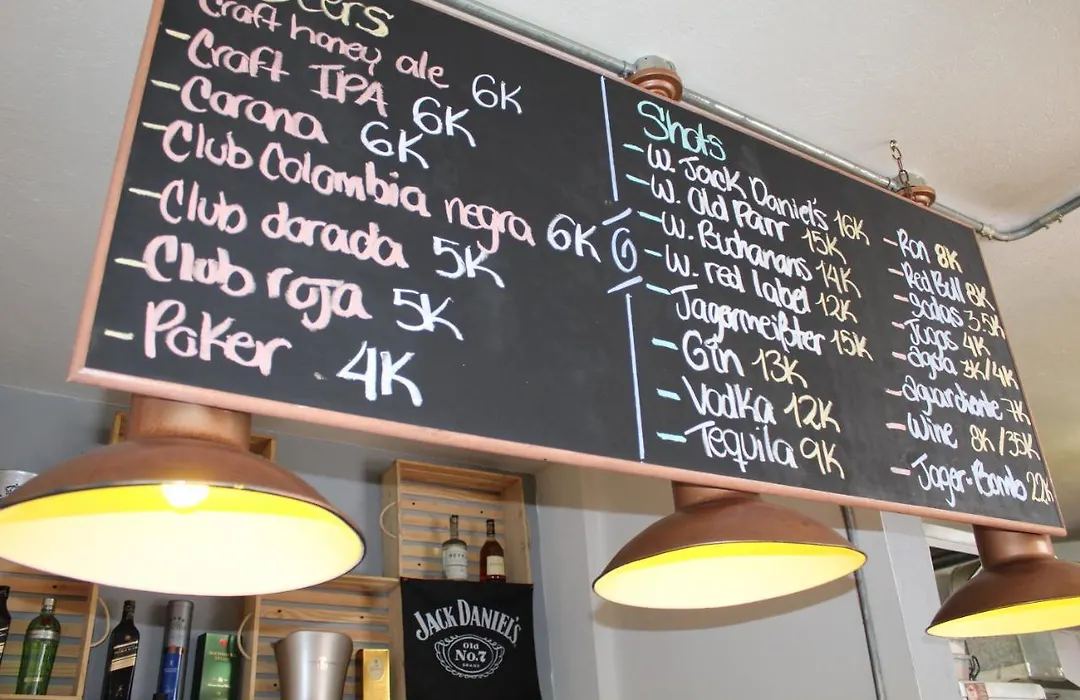 Beers
Craft honey ale 6K
- Craft IPA 6K
- Corona 6K
- Club Colombia negra 6K
- Club dorada 5K
- Club roja 5K
- Poker 4K
Shots
- W. Jack Daniel's 16K
- W. Old Parr 15K
- W. Buchanans 14K
- W. red label 12K
- Jagermeißter 15K
- Gin 13K
- Vodka 12K
- Tequila 9K
- Ron 8K
- Red Bull 8K
- sodas 3.5K
- Jugos 4K
- agua 3K/4K
- aguardiente 7K
- Wine 8K/35K
- Jager-Bomb 22K
JACK DANIEL'S
Old
No.7
BRAND